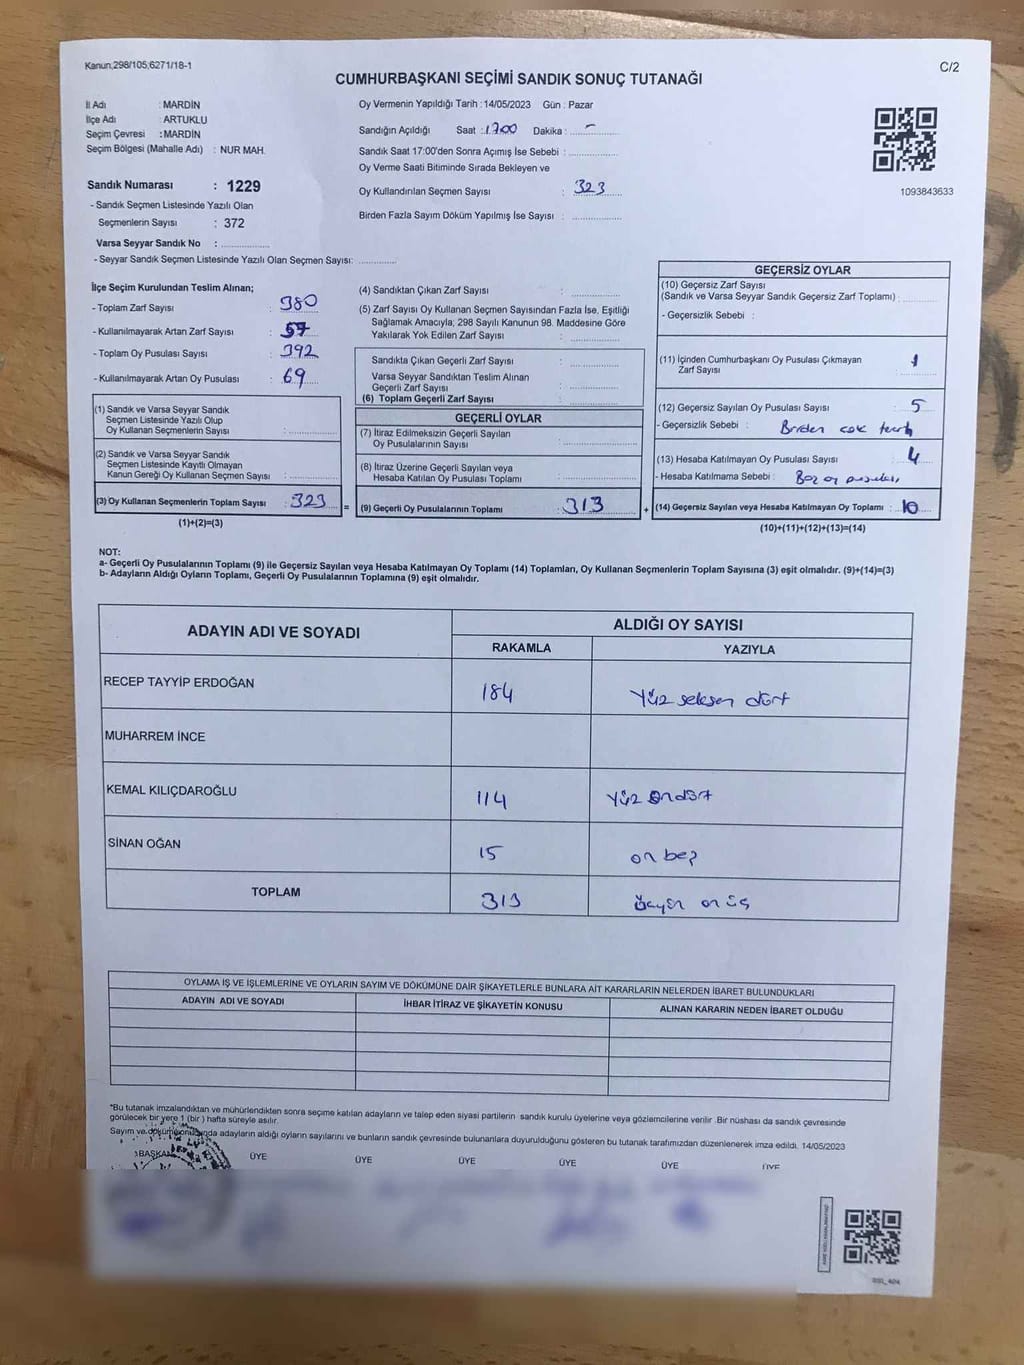 Kanun,298/105,6271/18-1
C/2
CUMHURBAŞKANI SEÇİMİ SANDIK SONUÇ TUTANAĞI
İl Adı : MARDİN
İlçe Adı : ARTUKLU
Seçim Çevresi : MARDİN
Seçim Bölgesi (Mahalle Adı) : NUR MAH.
Sandık Numarası : 1229
- Sandık Seçmen Listesinde Yazılı Olan
Seçmenlerin Sayısı : 372
Varsa Seyyar Sandık No :
- Seyyar Sandık Seçmen Listesinde Yazılı Olan Seçmen Sayısı:
Oy Vermenin Yapıldığı Tarih : 14/05/2023 Gün : Pazar
Sandığın Açıldığı Saat : 17.00 Dakika : -
Sandık Saat 17:00'den Sonra Açımış İse Sebebi :
Oy Verme Saati Bitiminde Sırada Bekleyen ve
Oy Kullandırılan Seçmen Sayısı : 323
Birden Fazla Sayım Döküm Yapılmış İse Sayısı :
1093843633
İlçe Seçim Kurulundan Teslim Alınan;
- Toplam Zarf Sayısı : 380
- Kullanılmayarak Artan Zarf Sayısı : 57
- Toplam Oy Pusulası Sayısı : 392
- Kullanılmayarak Artan Oy Pusulası : 69
(1) Sandık ve Varsa Seyyar Sandık
Seçmen Listesinde Yazılı Olup
Oy Kullanan Seçmenlerin Sayısı :
(2) Sandık ve Varsa Seyyar Sandık
Seçmen Listesinde Kayıtlı Olmayan
Kanun Gereği Oy Kullanan Seçmen Sayısı :
(3) Oy Kullanan Seçmenlerin Toplam Sayısı : 323
(1)+(2)=(3)
(4) Sandıktan Çıkan Zarf Sayısı :
(5) Zarf Sayısı Oy Kullanan Seçmen Sayısından Fazla İse, Eşitliği
Sağlamak Amacıyla, 298 Sayılı Kanunun 98. Maddesine Göre
Yakılarak Yok Edilen Zarf Sayısı :
Sandıkta Çıkan Geçerli Zarf Sayısı :
Varsa Seyyar Sandıktan Teslim Alınan
Geçerli Zarf Sayısı :
(6) Toplam Geçerli Zarf Sayısı :
GEÇERLİ OYLAR
(7) İtiraz Edilmeksizin Geçerli Sayılan
Oy Pusulalarının Sayısı :
(8) İtiraz Üzerine Geçerli Sayılan veya
Hesaba Katılan Oy Pusulası Toplamı :
= (9) Geçerli Oy Pusulalarının Toplamı : 313
GEÇERSİZ OYLAR
(10) Geçersiz Zarf Sayısı
(Sandık ve Varsa Seyyar Sandık Geçersiz Zarf Toplamı) :
- Geçersizlik Sebebi :
(11) İçinden Cumhurbaşkanı Oy Pusulası Çıkmayan
Zarf Sayısı : 1
(12) Geçersiz Sayılan Oy Pusulası Sayısı : 5
- Geçersizlik Sebebi : Birden cok tercih
(13) Hesaba Katılmayan Oy Pusulası Sayısı : 4
- Hesaba Katılmama Sebebi : Boş oy pusulası
+ (14) Geçersiz Sayılan veya Hesaba Katılmayan Oy Toplamı : 10
(10)+(11)+(12)+(13)=(14)
NOT:
a- Geçerli Oy Pusulalarının Toplamı (9) ile Geçersiz Sayılan veya Hesaba Katılmayan Oy Toplamı (14) Toplamları, Oy Kullanan Seçmenlerin Toplam Sayısına (3) eşit olmalıdır. (9)+(14)=(3)
b- Adayların Aldığı Oyların Toplamı, Geçerli Oy Pusulalarının Toplamına (9) eşit olmalıdır.
ADAYIN ADI VE SOYADI
ALDIĞI OY SAYISI
RAKAMLA YAZIYLA
RECEP TAYYİP ERDOĞAN 184 Yüz seksen dört
MUHARREM İNCE
KEMAL KILIÇDAROĞLU 114 Yüz ondört
SİNAN OĞAN 15 on beş
TOPLAM 313 üçyüz on üç
OYLAMA İŞ VE İŞLEMLERİNE VE OYLARIN SAYIM VE DÖKÜMÜNE DAİR ŞİKAYETLERLE BUNLARA AİT KARARLARIN NELERDEN İBARET BULUNDUKLARI
ADAYIN ADI VE SOYADI İHBAR İTİRAZ VE ŞİKAYETİN KONUSU ALINAN KARARIN NEDEN İBARET OLDUĞU
*Bu tutanak imzalandıktan ve mühürlendikten sonra seçime katılan adayların ve talep eden siyasi partilerin sandık kurulu üyelerine veya gözlemcilerine verilir .Bir nüshası da sandık çevresinde
görülecek bir yere 1 (bir ) hafta süreyle asılır.
Sayım ve dökümün sonunda adayların aldığı oyların sayılarını ve bunların sandık çevresinde bulunanlara duyurulduğunu gösteren bu tutanak tarafımızdan düzenlenerek imza edildi. 14/05/2023
BAŞKAN ÜYE ÜYE ÜYE ÜYE ÜYE ÜYE